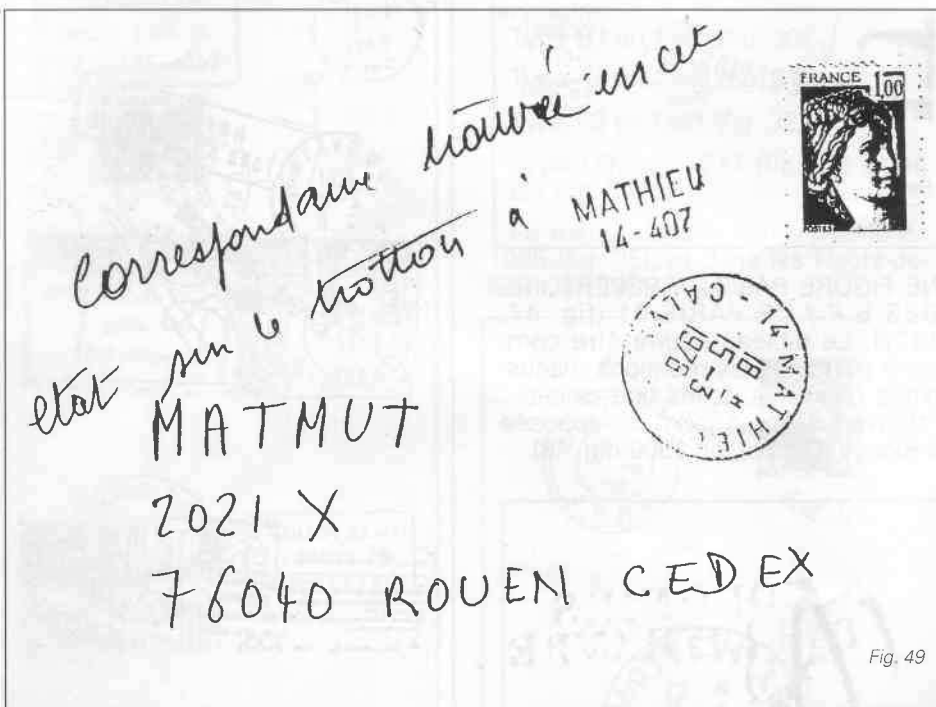 Correspondance trouvée en cet
état sur le trottoir à
MATHIEU
14-407
FRANCE 1,00
POSTES
14 MATHIEU - CALV
18 H
15 - 3
1978
MATMUT
2021 X
76040 ROUEN CEDEX
Fig. 49